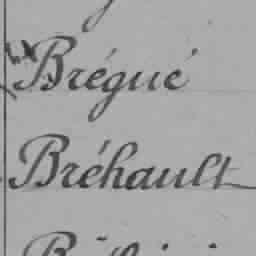 Brégué
Bréhault